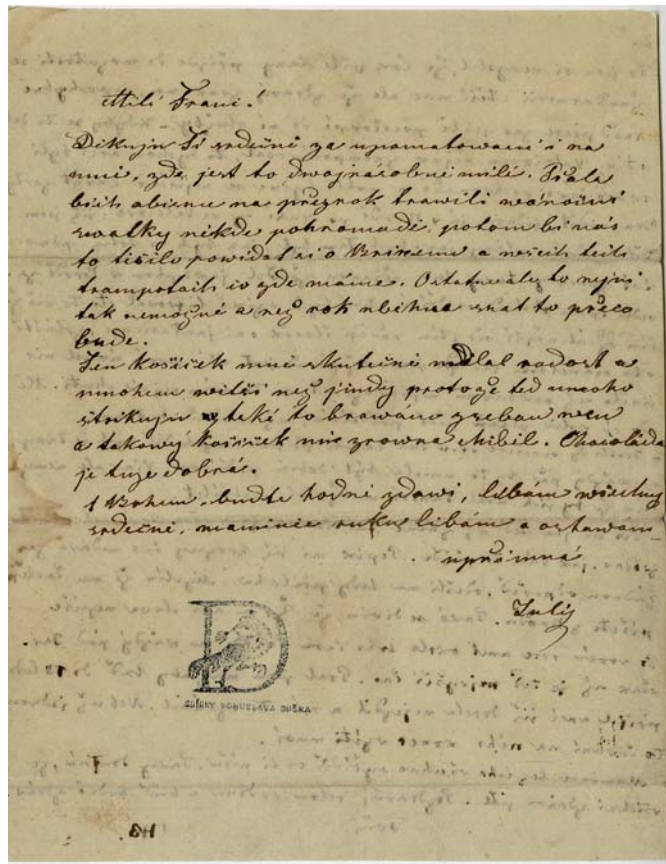 Milí Frani!
Dikuju Ti srdečni za upomatowaní i na
mni, zde jest to dwojnásobni milé. Psala
bich abisme na přezrok trawili wánoční
swatky někde pohromadě, potom bi nás
to tišilo powidat si o Brixenu a wšich těch
trampotach co zde máme. Ostatně ale to nejní
tak nemožné a než rok ubihne snat to přeco
bude.
Ten košíček mni skutečni udělal radost a
mnohem wětší než jindy protože teď mnoho
štrikuju také to brawáno sebou wen
a takowý košíček mni zrowna chibil. Chocoláda
je tuze dobrá.
S Bohem, buďte hodni zdrawi, líbám wšechny
srdečni, mamince ruku líbám a ostáwám
upřimná
Julij
D
SBÍRKY BOHUSLAVA DUŠKA